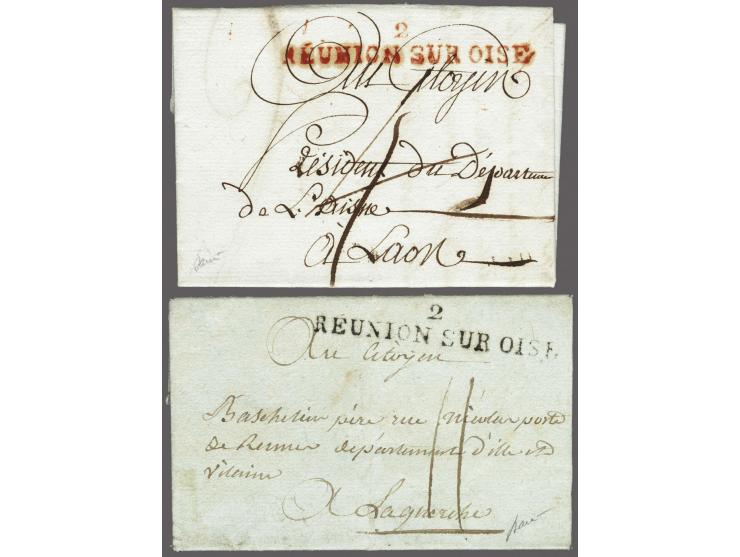 2
RÉUNION SUR OISE
Au Citoyen
Président du Département
de L'Aisne
à Laon
2
RÉUNION SUR OISE
Au Citoyen
Baschelier père rue porte
de Rennes département d'ille et
vilaine
A Laguerche